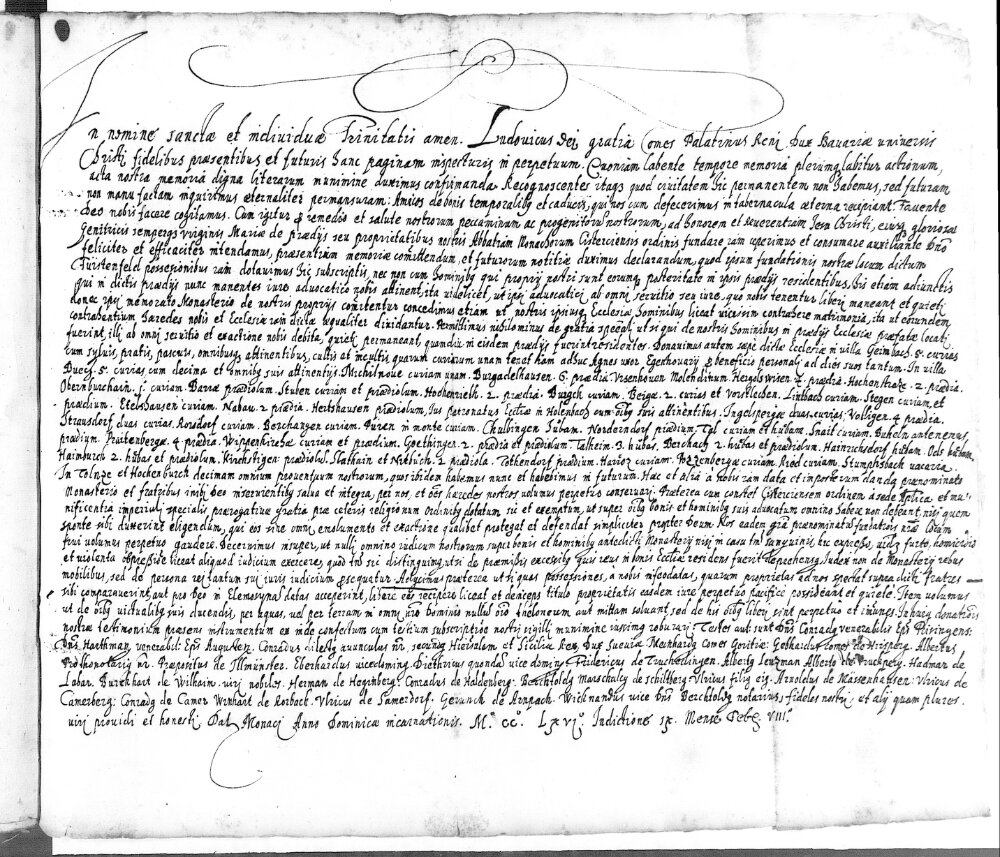 In nomine sanctæ et individuæ Trinitatis amen. Ludovicus Dei gratia Comes Palatinus Reni Dux Bavariæ universis
Christi fidelibus præsentibus et futuris hanc paginam inspecturis in perpetuum. Quoniam labente tempore memoria plerumq labitur actionum,
acta nostra memoria digna literarum munimine duximus confirmanda. Recognoscentes itaq quod civitatem hic permanentem non habemus, sed futuram
non manu factam inquirimus æternaliter permansuram: Amicos de bonis temporalibq et caducis, qui nos cum defecerimus in tabernacula æterna recipiant. favente
Deo nobis facere cogitamus. Cum igitur p remedio et salute nostrorum peccaminum ac progenitorum nostrorum, ad honorem et reverentiam Jesu Christi, eiusq gloriosæ
Genitricis semperq virginis Mariæ de prædijs seu proprietatibus nostris Abbatiam Monachorum Cisterciensis ordinis fundare iam ceperimus et consumare auxiliante Dno
feliciter et efficaciter intendamus, præsentium memoriæ committendum, et futurorum notitiæ duximus declarandum, quod ipsum fundationis nostræ locum dictum
Fürstenfeld possessionibus iam dotavimus hic subscriptis, nec non cum hominibq qui proprij nostri sunt eorumq posteritate in ipsis prædijs residentibus, his etiam adiunctis
qui in dictis prædijs nunc manentes iure advocatico nobis attinent, ita videlicet, ut ipsi advocatici ab omni servitio seu iure, quo nobis tenentur liberi maneant et quieti
Donec ipsi memorato Monasterio de nostris proprijs comitentur concedimus etiam ut nostris ipsiusq Ecclesiæ hominibus liceat vicissim contrahere matrimonia, ita ut eorundem
contrahentium hæredes nobis et Ecclesiæ iam dictæ æqualiter dividantur. Permittimus nihilominus de gratia speciali, ut si qui de nostris hominibus in prædijs Ecclesiæ præfatæ locati
fuerint, illi ab omni servitio et exactione nobis debita, quieti permaneant, quamdiu in eisdem prædijs fuerint residentes. Donavimus autem sæpe dictæ Ecclesiæ in villa Geimbach. 5. curias
cum sylvis, pratis, pascuis, omnibusq attinentibus, cultis et incultis quarum curiarum unam tenet ham adhuc Agnes uxor p beneficio personali ad dies suos tantum. In villa
Puech. 5. curias cum decima et omnibq suis attinentijs Michilnove curiam unam. Burgadelhausen. 6. prædia. Visenhouen Molendinum. Hergoltswiser. 2. prædia. Hochenstrate. 2. prædia.
Obernburchain. j. curiam. Barræ prædiolum. Stuben curiam et prædiolum. Hochenrieth. 2. prædia. Burgch curiam. Beigæ. 2. curias et vorstlechen. Linbach curiam. Stegen curiam, et
prædium. Etelshausen curiam. Nabau. 2. prædia. Hertshausen prædiolum, Jus personatus Ecclæ in Holenbach cum oibq suis attinentibus. Ingelsperge duas curias, Vollgen. 4. prædia.
Strausdorf duas curias. Rorsdorf curiam. Berchangen curiam. Puren in monte curiam. Chulbingen hubam. Norderndorf prædium, Tal curiam et hubam, Snait curiam. Puheln antenenus
prædium. Prittenbergæ. 4. prædia. Wippenhirche curiam et prædium. Goethinger. 2. prædia et prædiolum. Talheim. 3. hubas. Berchach. 2. hubas et prædiolum. Hainrichsdorf hubam. Ode hubam
Hainburch 2. hubas et prædiolum. Kirchstigen prædiolum. Slathain et Nitbuch. 2. prædiola. Tothendorf prædium. curiam. curiam. Ried curiam. Stumphsbach vaccaria.
In Tolnze et Hochenburch decimam omnium proventuum nostrorum, quos ibidem habemus nunc et habebimus in futurum. Hæc et alia à nobis iam data et imposterum danda prænominato
Monasterio et fratribus inibi Deo inservientibq salva et integra, per nos, et oes hæredes nostros volumus perpetuo conservari. Præterea cum constet Cisterciensem ordinem à sede Aplica et mu-
nificentia imperiali specialis prerogativæ gratia præ cæteris religionum ordinibq dotatum sic et exemptum, ut super oibq bonis et hominibq suis advocatum omnino habere non debeant, nisi quem
sponte sibi duxerint eligendum, qui eos sine omni emolumento et exactione qualibet protegat et defendat simpliciter propter Deum. Nos eadem gra prænominatos fundatores nræ
frui volumus perpetuo gaudere. Decernimus insuper, ut nulli omnino iudicum nostrorum super bonis et hominibq antedicti Monasterij nisi in casu tm sanguinis, hic expresso, videlz furto, homicidio
et violenta oppressione liceat aliquod iudicium exercere, quod ino sic distinguimq, ut si de præmissis excessibq quis reus in bonis Eccliæ residens fuerit deprehensq, Iudex non de Monasterij rebus
mobilibus, sed de persona rei tantum sui juris iudicium psequatur. Adijcimus præterea ut si quas possessiones, a nobis infeodatas, quarum proprietas ad nos spectat supra dicti fratres
sibi comparaverint, aut pro Deo in Elemosyna datas acceperint, libere eas recipere liceat et deinceps titulo proprietatis easdem iure perpetuo pacifice possideant et quiete. Item volumus
ut de oibq victualibq suis ducendis, per aquas, vel per terram in omni nro Dominio nullus eis theloneorum aut muttam solvant, sed de his oibq liberi sint perpetuo et inmunes. In huiq donationis
nostræ testimonium præsens instrumentum ex inde confectum cum testium subscriptione nostri sigilli munimine iussimq roborari. Testes aut sunt Dns Conradq venerabilis Eps Frisingens:
Dns Harthman venerabil: Eps Augusten. Conradus dilectq avunculus nr. secundq Hierusalem et Siciliæ Rex, Dux Sueviæ. Meinhardq Comes Goritiæ. Gebhardus Comes de Hirsperg. Albertus
Prothonotariq nr. Præpositus de Illmünster. Eberhardus vicedominq, Diethricus quondā vice dominq. Fridericus de Truchetlingen. Albertq Leuzman Albertq de Pruckperg. Hadmar de
Labar. Burckhart de Wilhaim. viri nobiles. Herman de Hagenberg. Conradus de Haldenberg. Berchtoldq Marschalcq de Schiltberg Vlricus filiq eiq. Arnoldus de Massenhausen. Vlricus de
Camerberg. Conradq de Camer Winhart de Rorbach. Vlricus de Samerdorf. Gerunch de Arnpach. Wichnandus vice Dns Berchtoldq notarius, fideles nostri, et alij quam plures.
viri providi et honesti. Dat. Monaci Anno Dominicæ incarnationis. M.° CC.° LXVI.° Indictione IX. Mense Febr. VIII.°